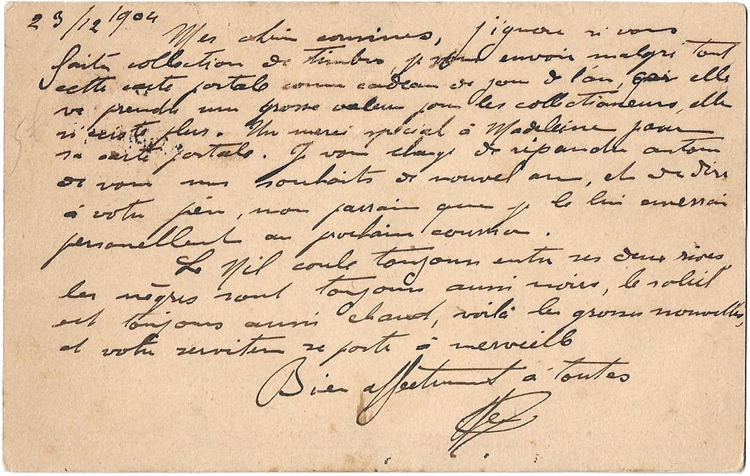 23/12/1904
Mes chères cousines, j'ignore si vous
faites collection de timbres, je vous envoie malgré tout
cette carte postale comme cadeau de jour de l'an, car elle
va prendre une grosse valeur pour les collectioneurs, elle
n'existe plus. Un merci spécial à Madeleine pour
sa carte postale. Je vous charge de répandre autour
de vous mes souhaits de nouvel an, et de dire
à votre père, mon parrain que je le lui enverrai
personellement au prochain courrier.
Le Nil coule toujours entre ses deux rives
les nègres sont toujours aussi noirs, le soleil
est toujours aussi chaud, voilà les grosses nouvelles,
et votre serviteur se porte à merveille
Bien affectueusement à toutes